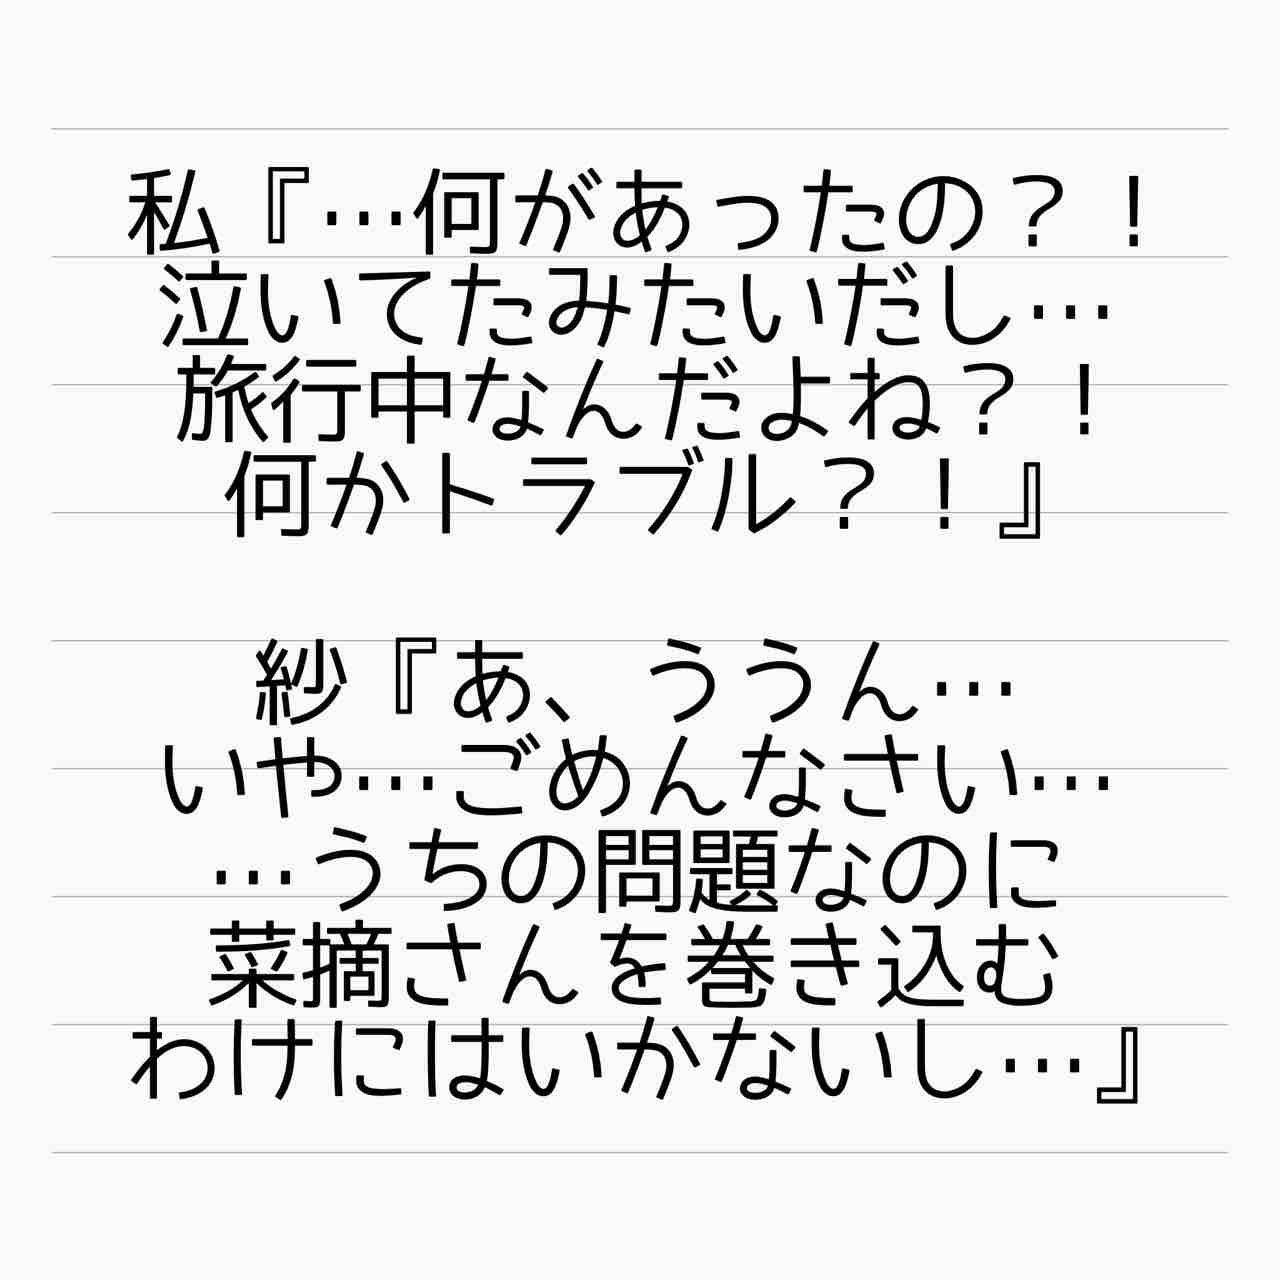 私『…何があったの？！
泣いてたみたいだし…
旅行中なんだよね？！
何かトラブル？！』
紗『あ、ううん…
いや…ごめんなさい…
…うちの問題なのに
菜摘さんを巻き込む
わけにはいかないし…』